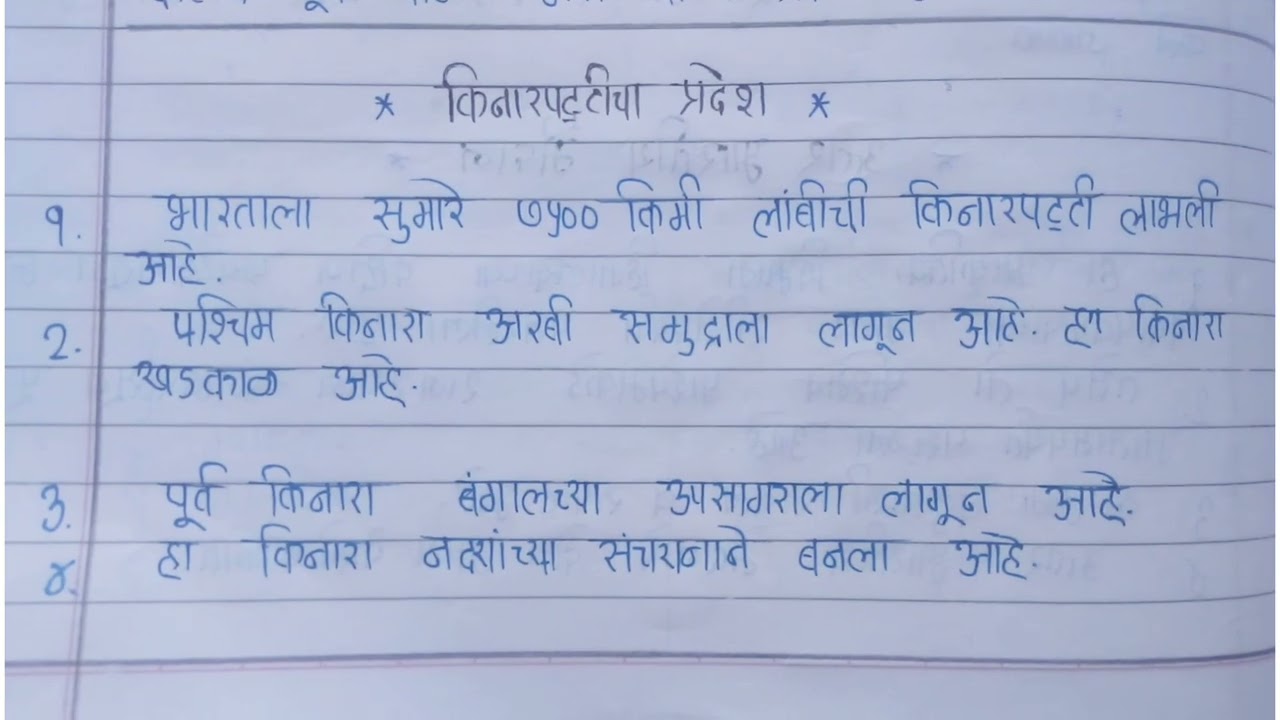 * किनारपट्टीचा प्रदेश *
१. भारताला सुमारे ७५०० किमी लांबीची किनारपट्टी लाभली
आहे.
2. पश्चिम किनारा अरबी समुद्राला लागून आहे. हा किनारा
खडकाळ आहे.
3. पूर्व किनारा बंगालच्या उपसागराला लागून आहे.
४. हा किनारा नद्यांच्या संचरनाने बनला आहे